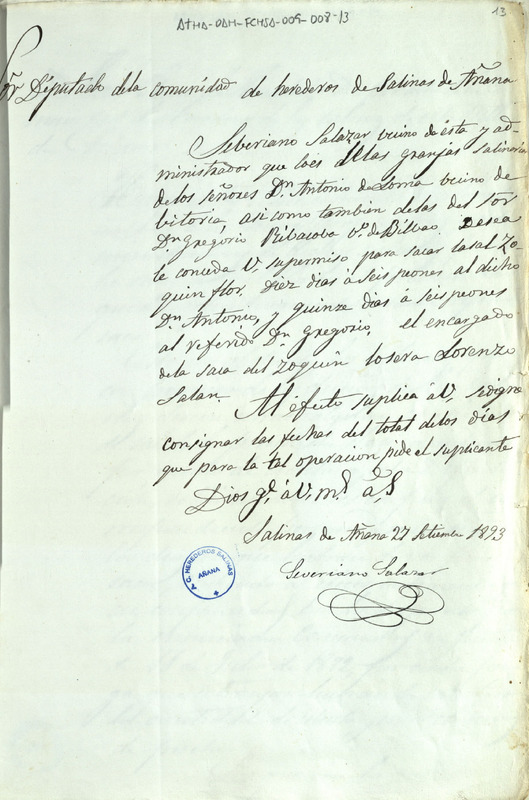 ATHA-DAH-FCHSA-009-008-13
13
Sor Diputado dela comunidad de herederos de Salinas de Añana
Severiano Salazar vecino de ésta y ad-
ministrador que loés delas granjas Salineras
delos señores Dn. Antonio de Loma vecino de
bitoria, asi como tambien delas del sor
Dn Gregorio Ribacoba vo. de Bilbao. Desea
le conceda V. supermiso para sacar lasal Zo
quin flor, Diez dias á seis peones al dicho
Dn. Antonio, y quinze dias á seis peones
al referido Dn. Gregorio, el encargado
dela saca del Zoquin losera Lorenzo
Salan
Al efecto suplica á V. sedigne
consignar las fechas del total delos días
que para la tal operacion pide el suplicante
Dios ge. á V. ms. as.
Salinas de Añana 27 Setiembre 1893
Severiano Salazar
C. HEREDEROS SALINAS
AÑANA